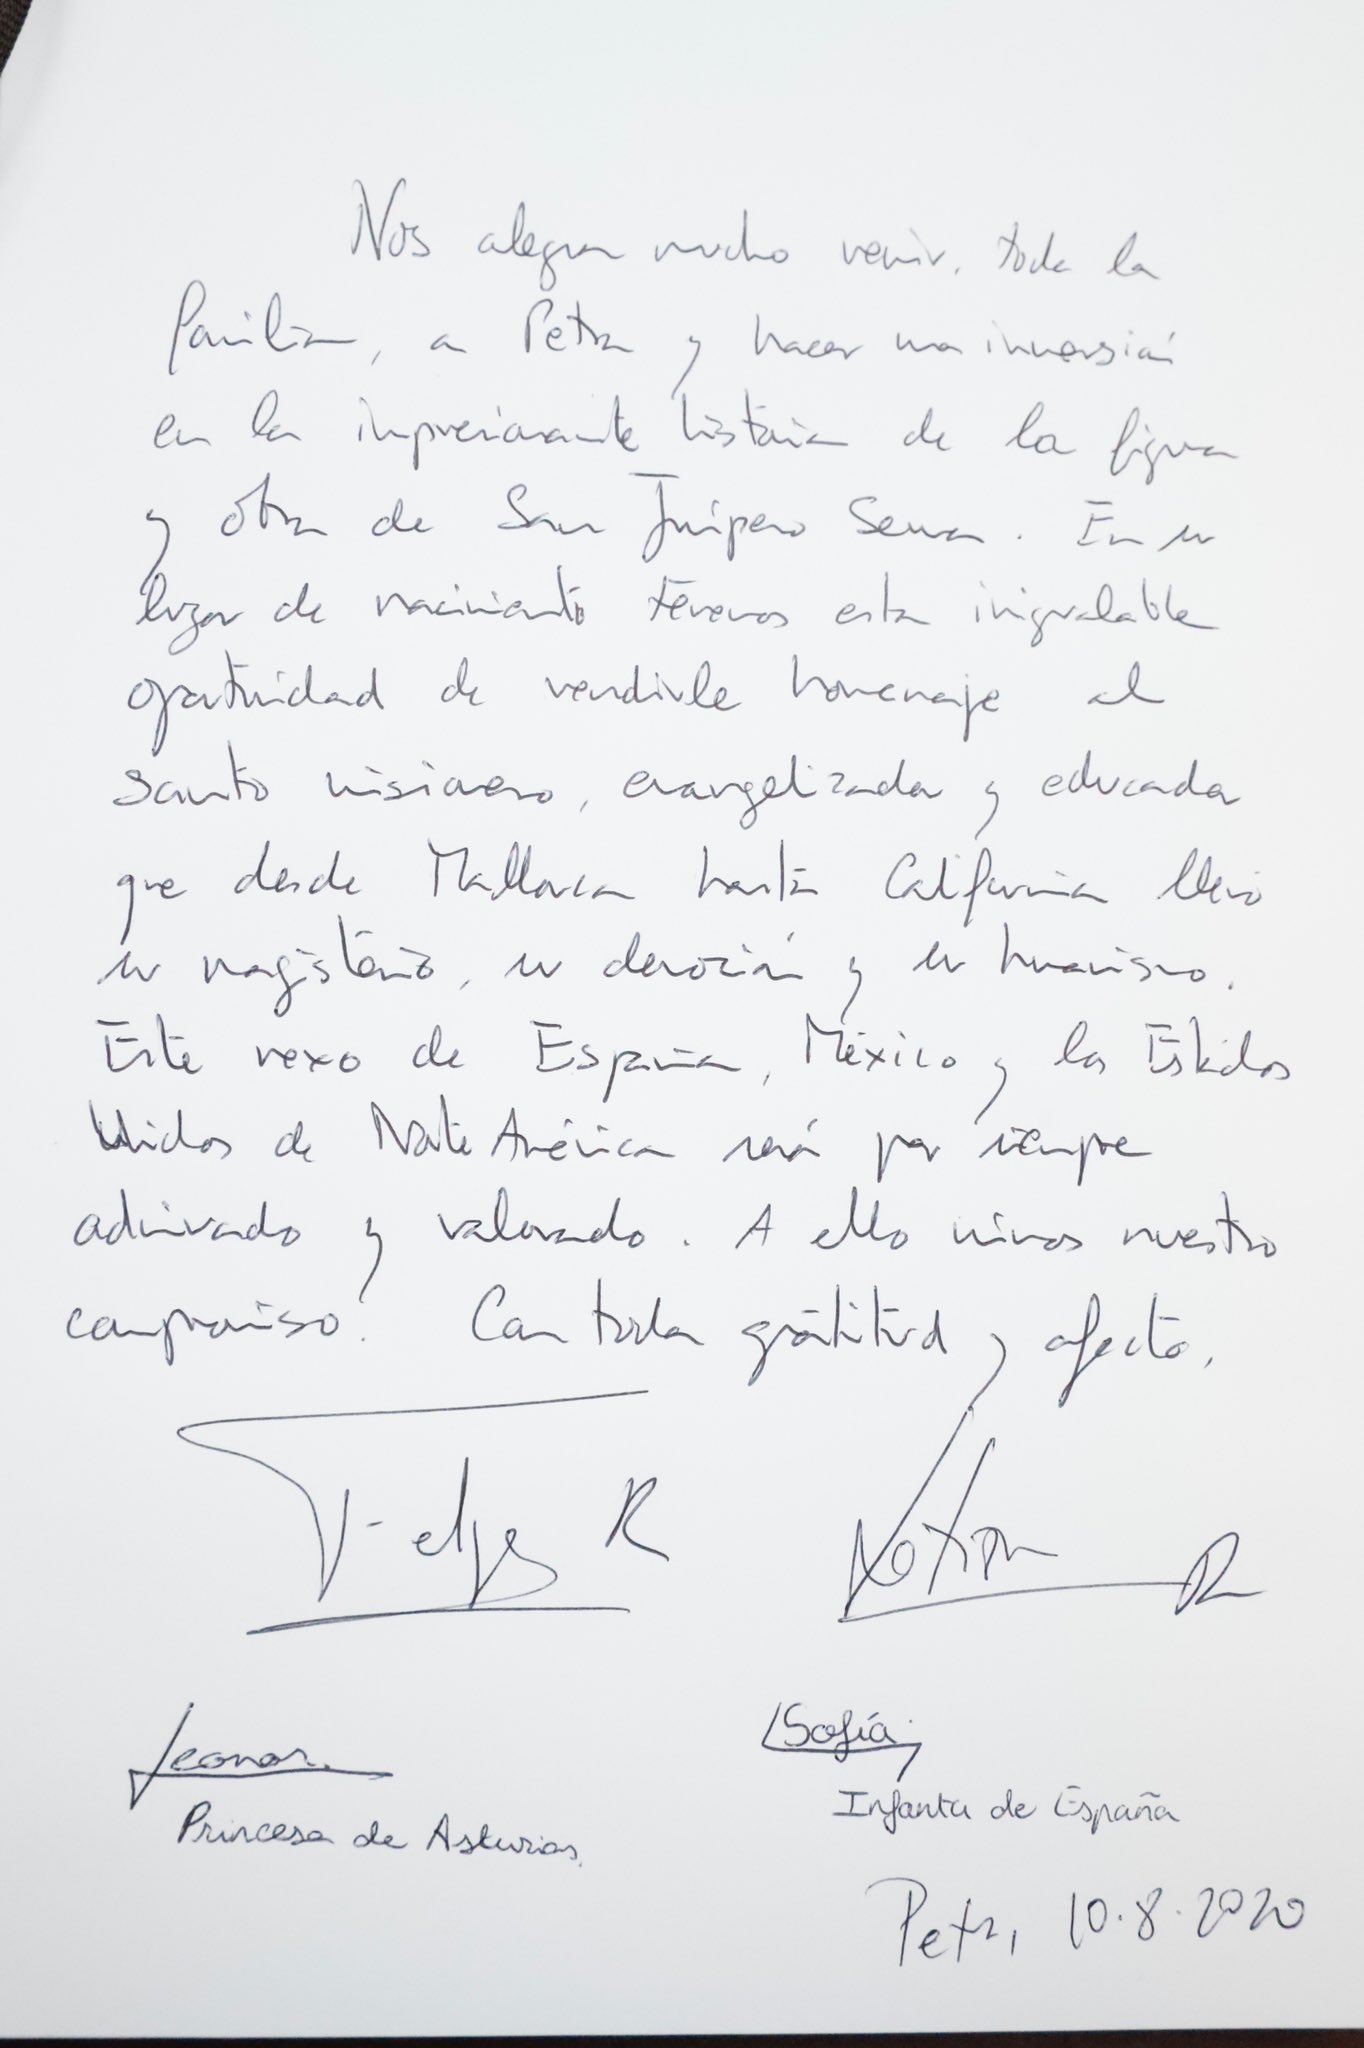 Nos alegra mucho venir, toda la
familia, a Petra y hacer una inmersión
en la impresionante historia de la figura
y obra de San Junípero Serra. En su
lugar de nacimiento tenemos esta inigualable
oportunidad de rendirle homenaje al
santo misionero, evangelizador y educador
que desde Mallorca hasta California llevó
su magisterio, su devoción y su humanismo.
Este nexo de España, México y los Estados
Unidos de Norte América será por siempre
admirado y valorado. A ello unimos nuestro
compromiso. Con toda gratitud y afecto,
Felipe R Letizia R
Leonor. Sofía.
Princesa de Asturias. Infanta de España
Petra, 10.8.2020